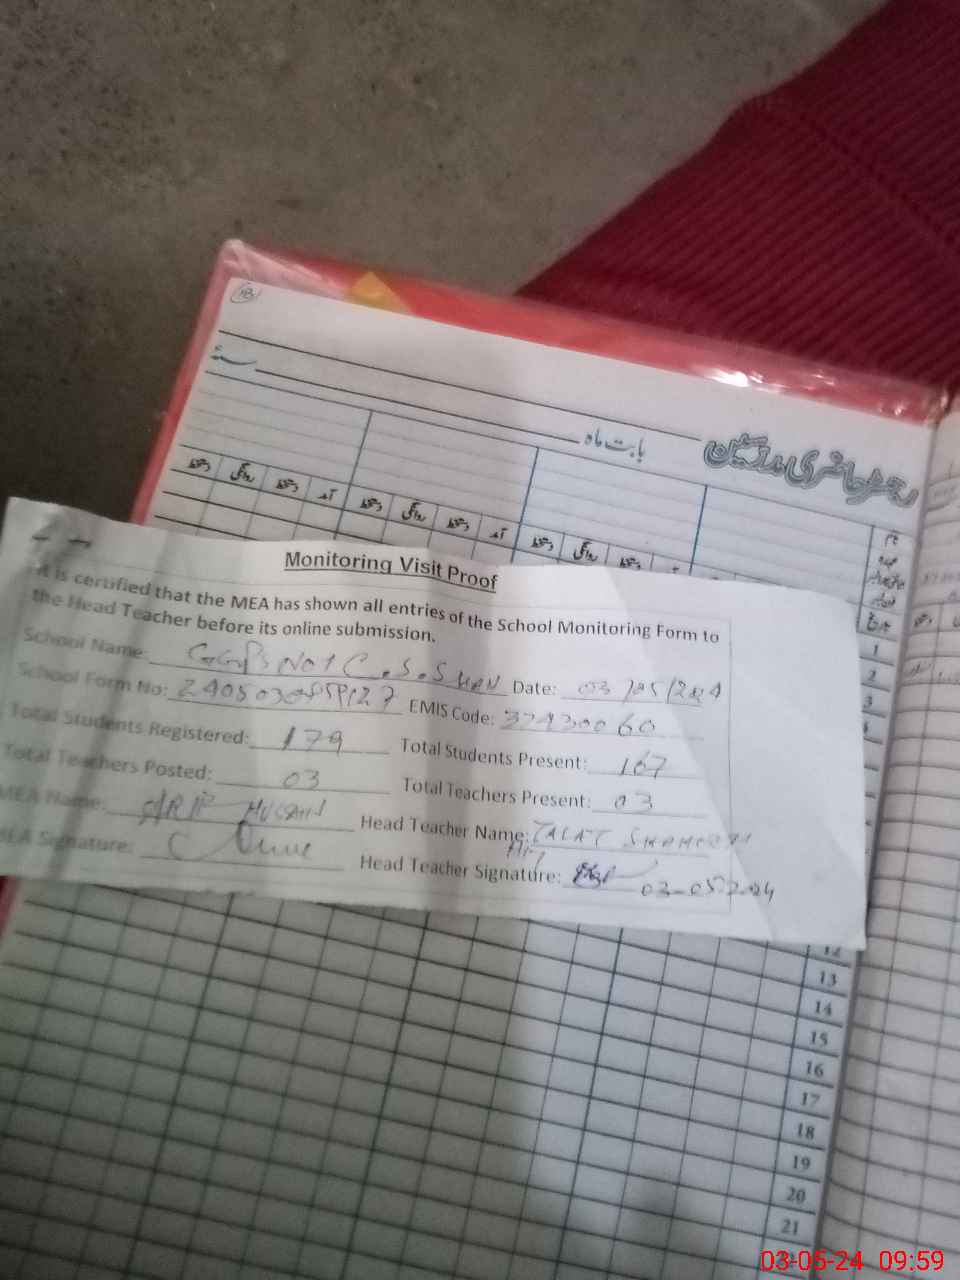 رجسٹر حاضری مدرسین
بابت ماہ
سنہ
آمد دستخط روانگی دستخط آمد دستخط روانگی دستخط
Monitoring Visit Proof
It is certified that the MEA has shown all entries of the School Monitoring Form to
the Head Teacher before its online submission.
School Name: Date: 03/05/2024
School Form No: EMIS Code: 37430060
Total Students Registered: 179 Total Students Present: 167
Total Teachers Posted: 03 Total Teachers Present: 03
MEA Name: Head Teacher Name: TALAT
MEA Signature: Head Teacher Signature: 03-05-2024
1
2
3
12
13
14
15
16
17
18
19
20
21
03-05-24 09:59